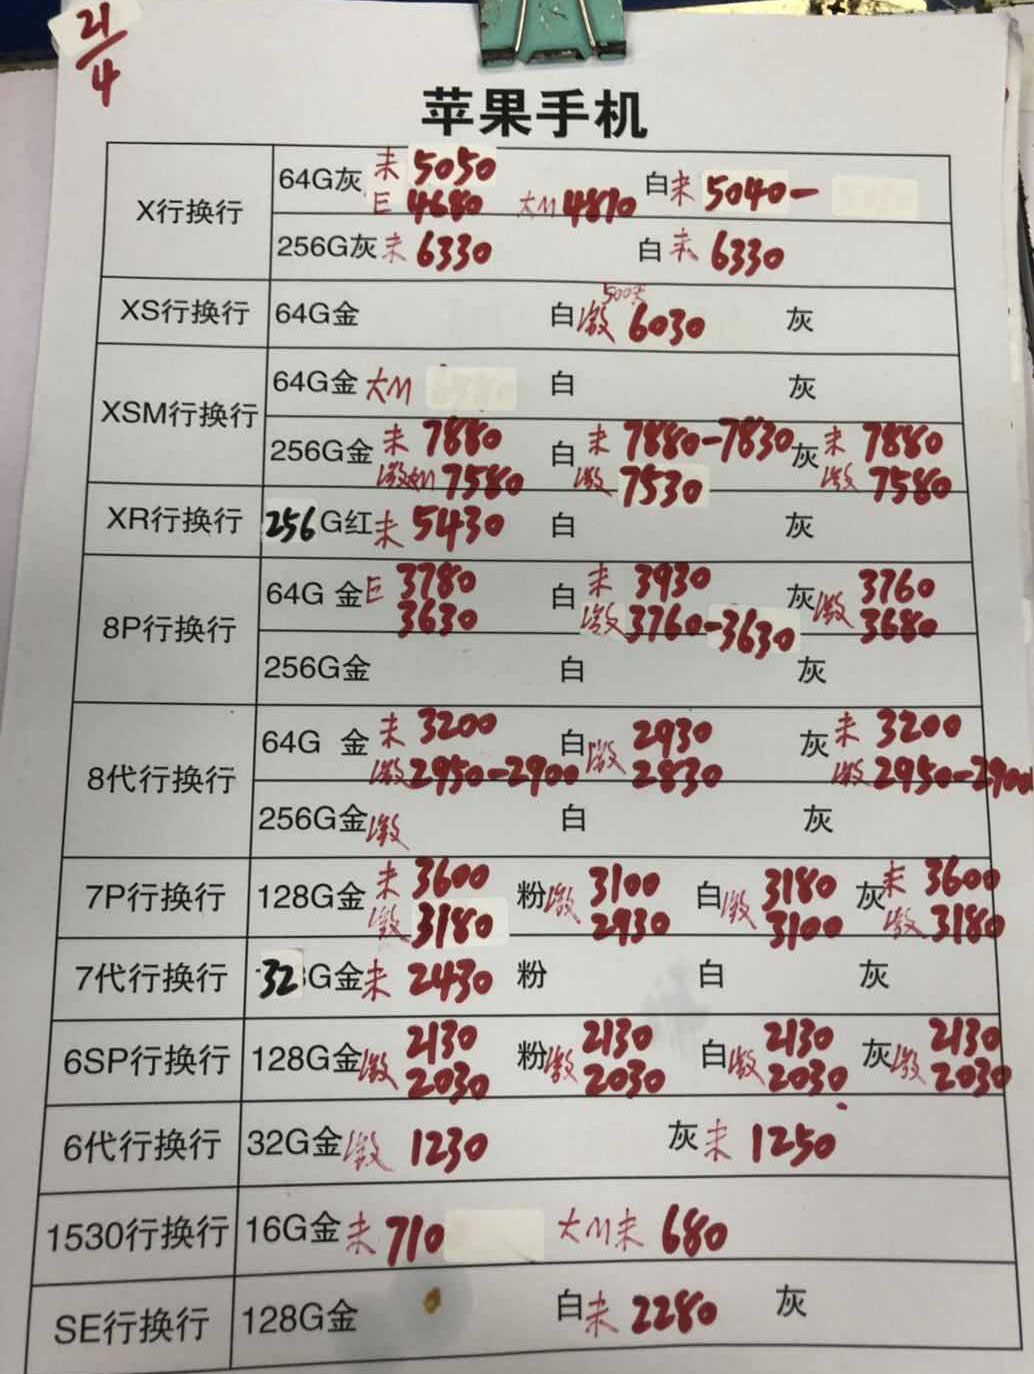 21/4
苹果手机
X行换行 64G灰 未 5050 白未 5040-
巨 4680 大M 4810
256G灰 未 6330 白 未 6330
500天
XS行换行 64G金 白激 6030 灰
XSM行换行 64G金 大M 白 灰
256G金 未 7880 白 未 7880-7830 灰 未 7880
激 7580 激 7530 激 7580
XR行换行 256G红未 5430 白 灰
8P行换行 64G 金 巨 3780 白 未 3930 灰激 3760
3630 激 3760-3630 3680
256G金 白 灰
8代行换行 64G 金 未 3200 白激 2930 灰 未 3200
激 2950-2900 2830 激 2950-2900
256G金激 白 灰
7P行换行 128G金 未 3600 粉激 3100 白激 3180 灰未 3600
激 3180 2930 3100 激 3180
7代行换行 32G金未 2430 粉 白 灰
6SP行换行 128G金激 2130 粉激 2130 白激 2130 灰激 2130
2030 2030 2030 2030
6代行换行 32G金激 1230 灰未 1250
1530行换行 16G金未 710 大M未 680
SE行换行 128G金 白未 2280 灰